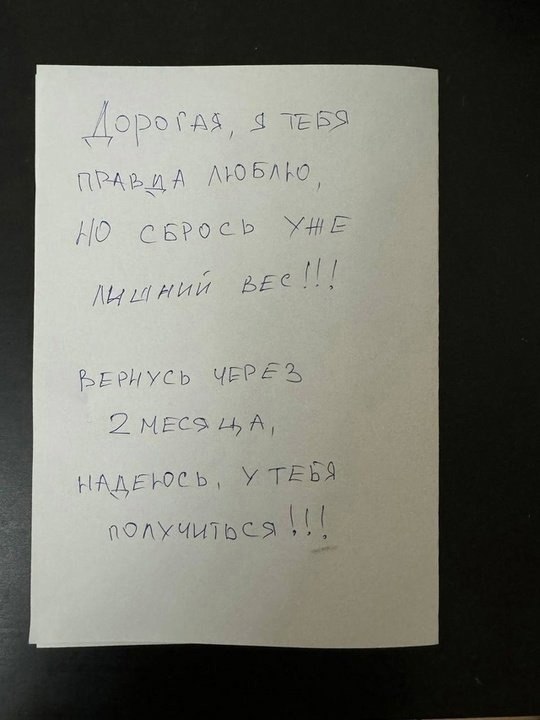 Дорогая, я тебя
правда люблю,
но сбрось уже
лишний вес!!!
Вернусь через
2 месяца,
надеюсь, у тебя
получиться!!!